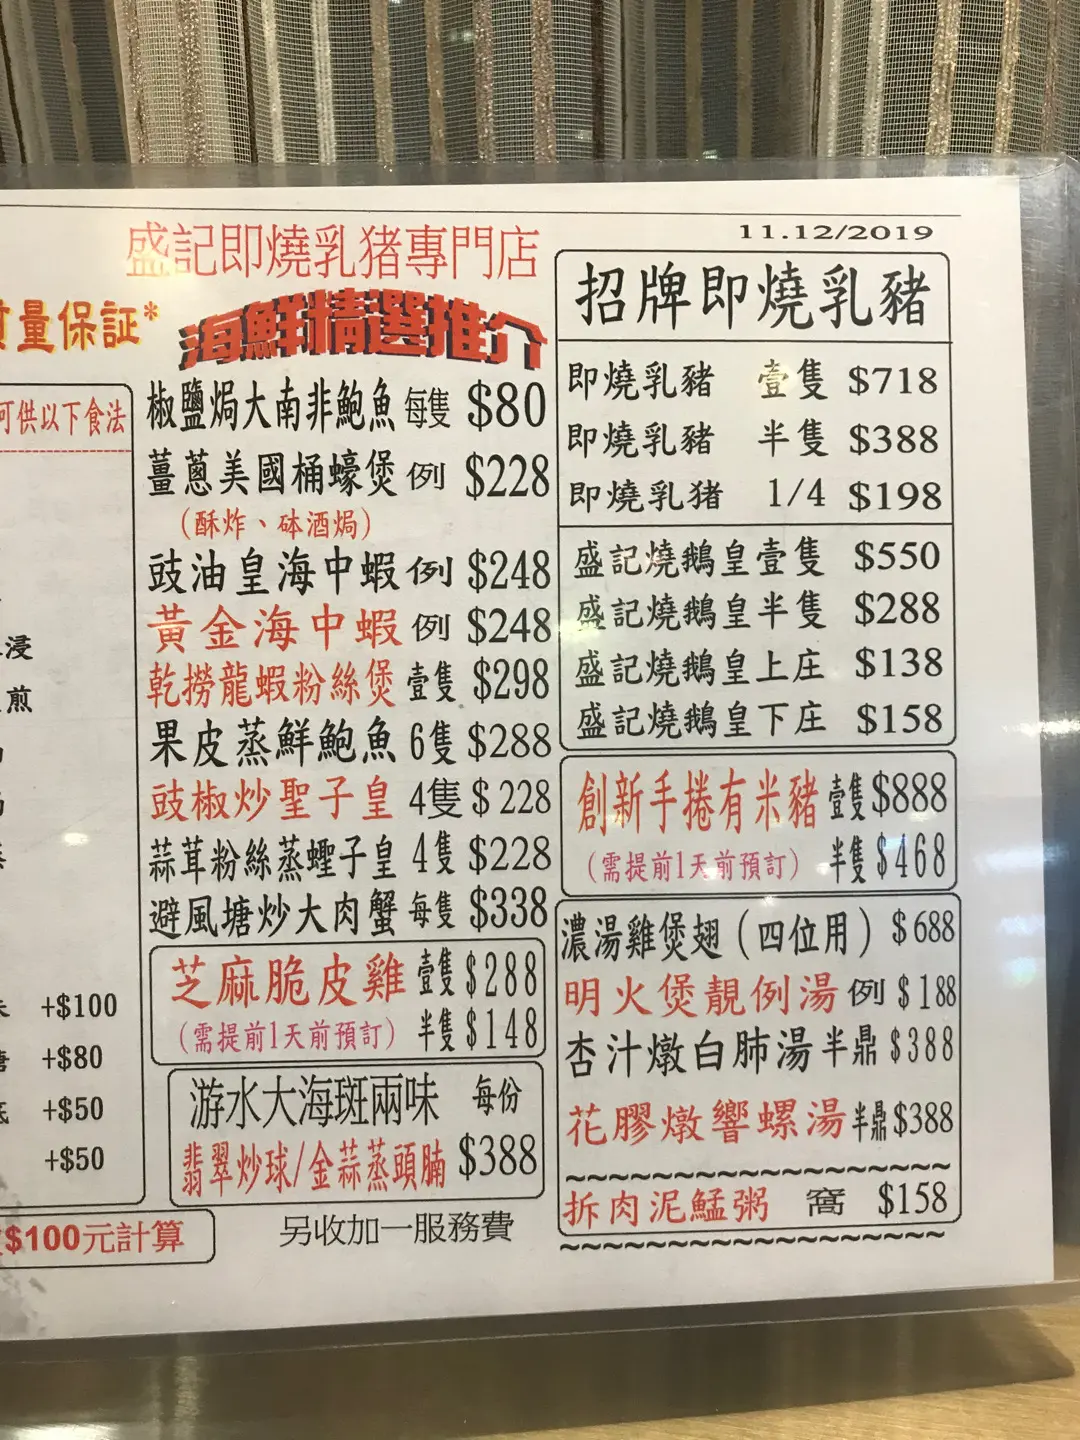 盛記即燒乳猪專門店
11.12/2019
量保証*
海鮮精選推介
可供以下食法
椒鹽焗大南非鮑魚 每隻 $80
薑蔥美國桶蠔煲 例 $228
(酥炸、砵酒焗)
豉油皇海中蝦 例 $248
黃金海中蝦 例 $248
乾撈龍蝦粉絲煲 壹隻 $298
果皮蒸鮮鮑魚 6隻 $288
豉椒炒聖子皇 4隻 $228
蒜茸粉絲蒸蟶子皇 4隻 $228
避風塘炒大肉蟹 每隻 $338
芝麻脆皮雞 壹隻 $288
(需提前1天前預訂) 半隻 $148
游水大海斑兩味 每份
翡翠炒球/金蒜蒸頭腩 $388
另收加一服務費
浸
煎
+$100
+$80
+$50
+$50
$100元計算
招牌即燒乳豬
即燒乳豬 壹隻 $718
即燒乳豬 半隻 $388
即燒乳猪 1/4 $198
盛記燒鵝皇壹隻 $550
盛記燒鵝皇半隻 $288
盛記燒鵝皇上庄 $138
盛記燒鵝皇下庄 $158
創新手捲有米豬 壹隻 $888
(需提前1天前預訂) 半隻 $468
濃湯雞煲翅(四位用) $688
明火煲靚例湯 例 $188
杏汁燉白肺湯 半鼎 $388
花膠燉響螺湯 半鼎 $388
拆肉泥鯭粥 窩 $158